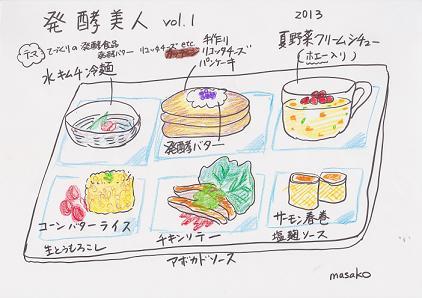 発酵美人 vol.1
2013
てづくりの発酵食品
発酵バター リコッタチーズ etc
水キムチ冷麺
手作り
リコッタチーズ
パンケーキ
夏野菜クリームシチュー
(ホエー入り)
発酵バター
コーンバターライス
生とうもろこし
チキンソテー
アボカドソース
サーモン春巻
塩麹ソース
masako